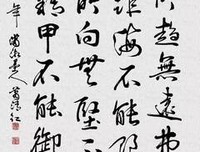 所趨無遠弗
距海不能限
所向無堅不
精甲不能御
年